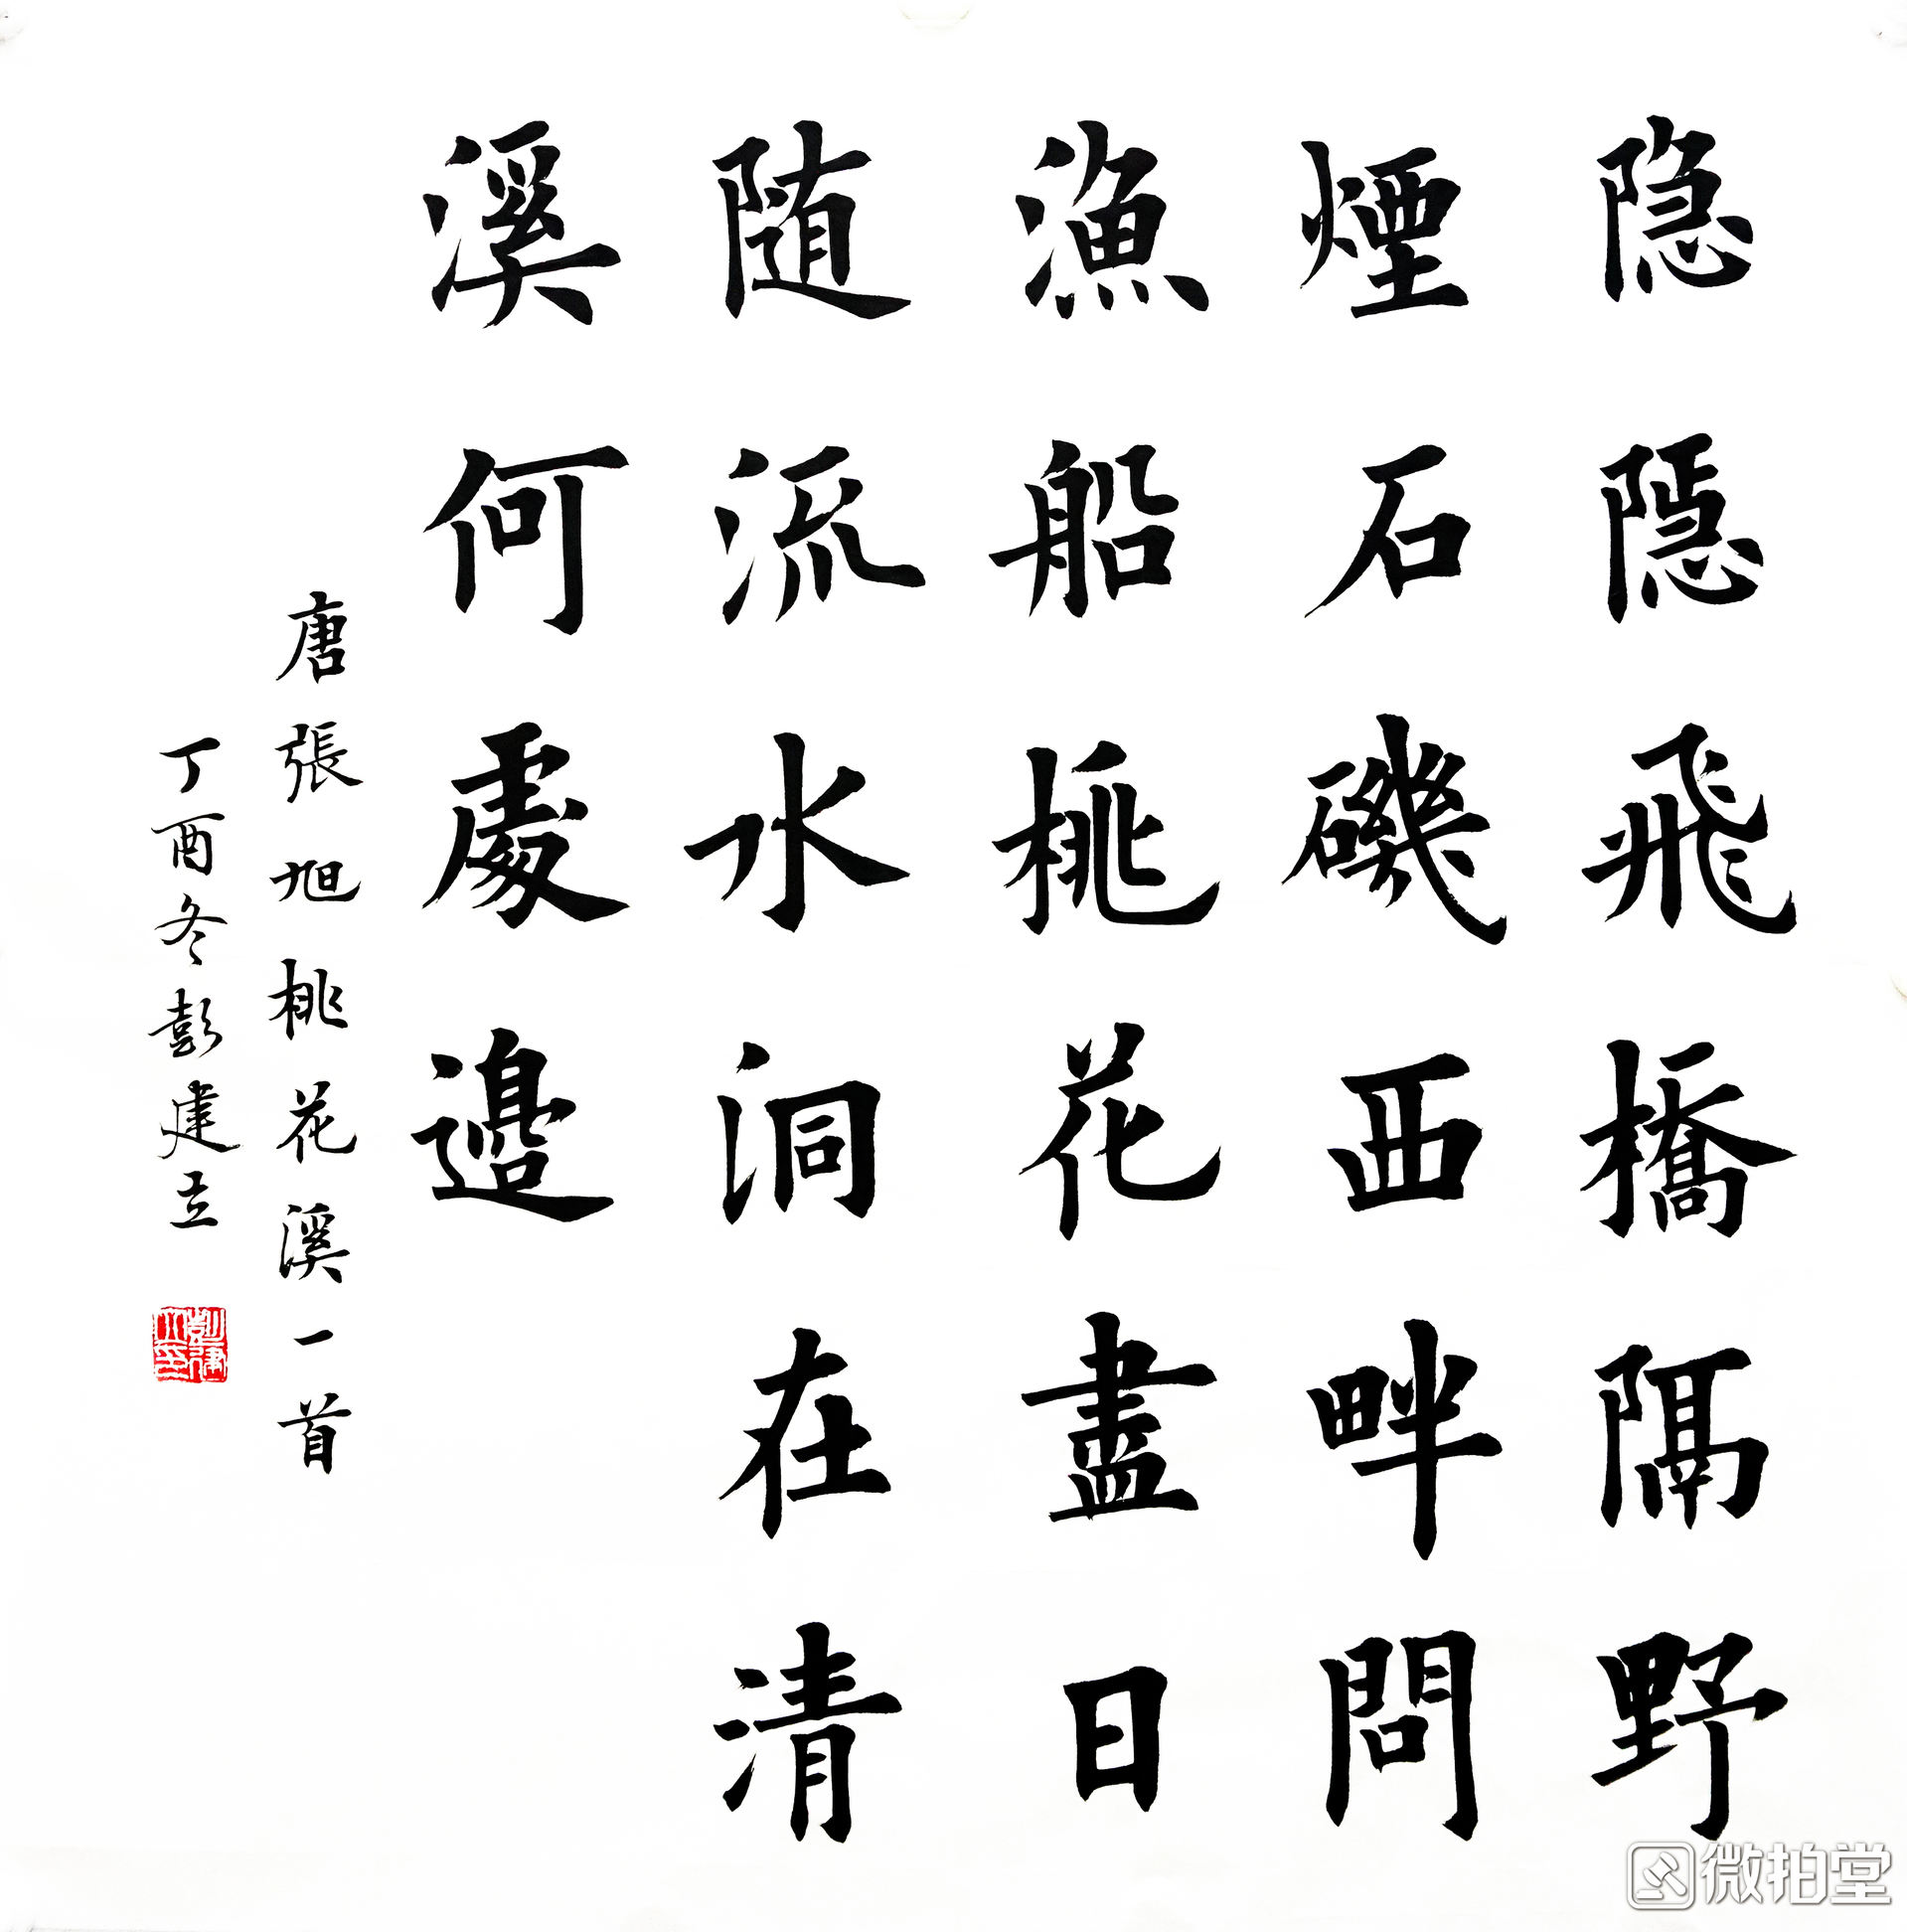 隐隱飛橋隔野
煙石磯西畔問
漁船桃花盡日
随流水洞在清
溪何處邊
唐張旭桃花溪一首
丁酉冬彭建立
彭建立印
微拍堂